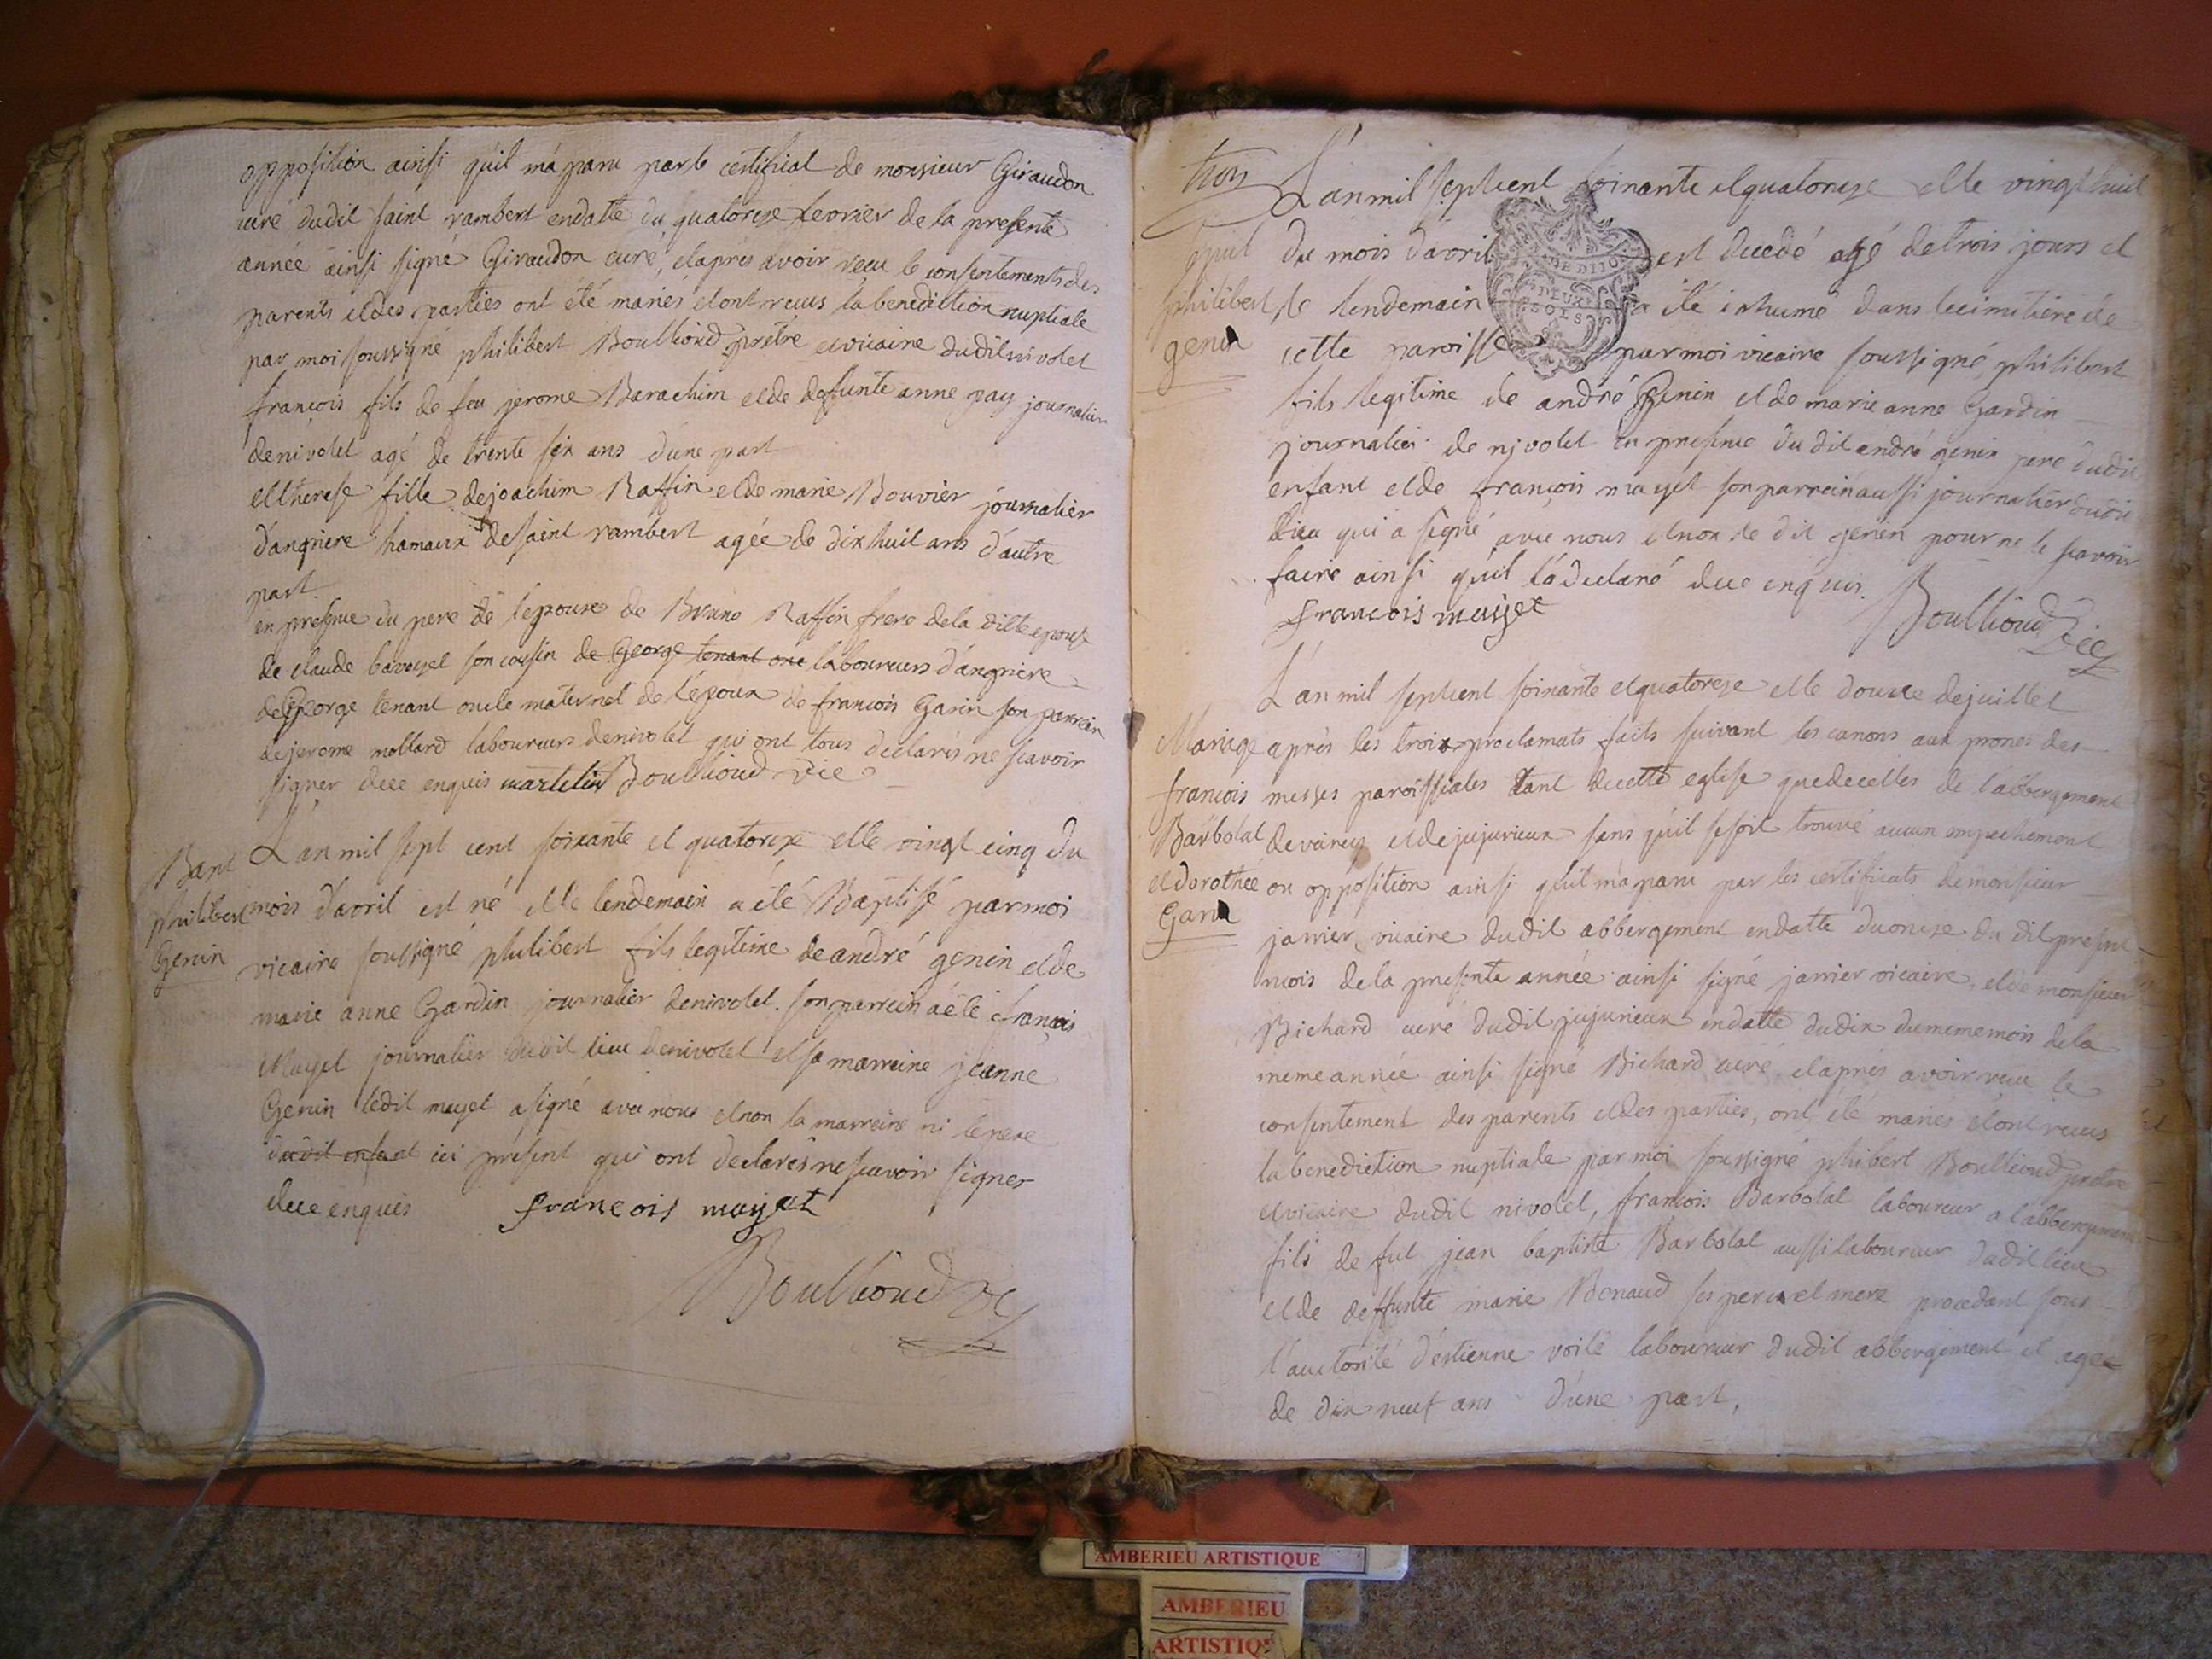 opposition ainsi qu'il m'a paru par le certificat de monsieur Giraudon
curé dudit saint rambert en datte du quatorze fevrier de la presente
année ainsi signé Giraudon curé, et aprés avoir reçu le consentements des
parents et des parties ont été mariés et ont recus la benediction nuptiale
par moi soussigné philibert Boullioud prêtre et vicaire dudit nivolet
francois fils de feu jerome Barachim et de deffunte anne pay journalier
de nivolet agé de trente six ans d'une part
et therese fille de joachim Raffin et de marie Bouvier journalier
d'angriere hamaux de saint rambert agée de dix huit ans d'autre
part
en presence du pere de l'epouse de Bruno Raffin frere de la ditte epouse
de claude bavoyet son cousin de George tenant one laboureurs d'angriere
de George tenant oncle maternel de l'époux de francois Garin son parrein
de jerome mollard laboureurs de nivolet qui ont tous declarés ne scavoir
signer de ce enquis Boullioud vic
Bapt
philibert
Genin
L'an mil sept cent soixante et quatorze et le vingt cinq du
mois d'avril est né et le lendemain a été Baptisé par moi
vicaire soussigné philibert fils legitime de andré genin et de
marie anne Gardin journalier de nivolet. son parrein a été francois
Mayet journalier dudit lieu de nivolet et sa marreine jeanne
Genin ledit mayet a signé avec nous et non la marreine ni le pere
dudit enfant ici présent qui ont declarés ne scavoir signer
de ce enquis francois mayet
Boullioud vic
trois
L'an mil sept cent soixante et quatorze et le vingt huit
du mois d'avril est decedé agé de trois jours et
philibert
genin
le lendemain a été inhumé dans le cimetiere de
DEUX
SOLS
cette paroisse par moi vicaire soussigné philibert
fils legitime de andré Genin et de marie anne Gardin
journalier de nivolet en presence du dit andré genin pere dudit
enfant et de francois mayet son parrein aussi journalier dudit
lieu qui a signé avec nous et non le dit genin pour ne le scavoir
faire ainsi qu'il l'a declaré de ce enquis.
francois mayet Boullioud vic
L'an mil sept cent soixante et quatorze et le douze de juillet
Mariage
francois
Barbolat
et dorothée
Garin
aprés les trois proclamats faits suivant les canons aux prones des
messes paroissiales tant de cette eglise que de celles de l'abbergement
de varey et de jujurieux sans qu'il se soit trouvé aucun empechement
ou opposition ainsi qu'il m'a paru par les certificats de monsieur
janier vicaire dudit abbergement en datte du onze du dit present
mois de la presente année ainsi signé janier vicaire, et de monsieur
Bichard curé dudit jujurieux en datte du dix du meme mois de la
meme année ainsi signé Bichard curé et aprés avoir recu le
consentement des parents et des parties, ont été mariés et ont recus
la benediction nuptiale par moi soussigné phibert Boullioud pretre
et vicaire dudit nivolet, francois Barbolat laboureur a l'abbergement
fils de fut jean baptiste Barbolat aussi laboureur dudit lieu
et de deffunte marie Bonaud ses pere et mere procedant sous
l'auctorité d'estienne voile laboureur dudit abbergement et agé
de dix neuf ans d'une part,
AMBERIEU ARTISTIQUE
AMBERIEU
ARTISTIQ